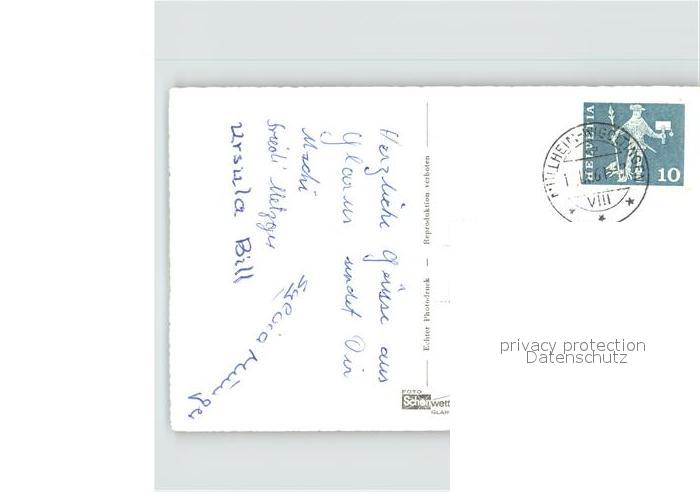 Herzliche Grüsse aus
Glarus sendet Dir
Uschi
Friedi Metzger
Ursula Bill
Echter Photodruck — Reproduktion verboten
FOTO
Schönwetter
GLAR
HELVETIA
10
MÜLLHEIM-WIGOLTINGEN
VIII
privacy protection
Datenschutz